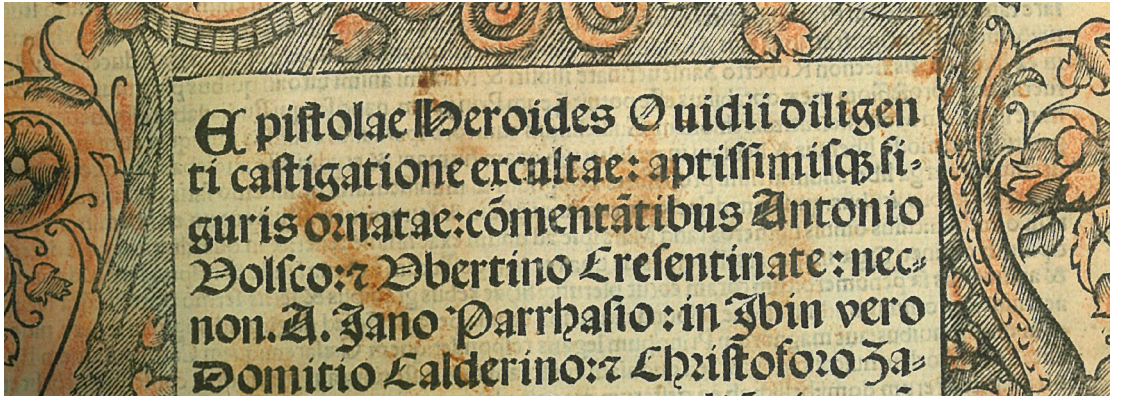 Epistolae Heroides Ouidii diligen
ti castigatione excultae: aptissimisqꝫ fi-
guris ornatae:cōmentātibus Antonio
Volsco:⁊ Vbertino Cresentinate: nec-
non. A. Jano Parrhasio: in Ibin vero
Domitio Calderino:⁊ Christoforo Za-